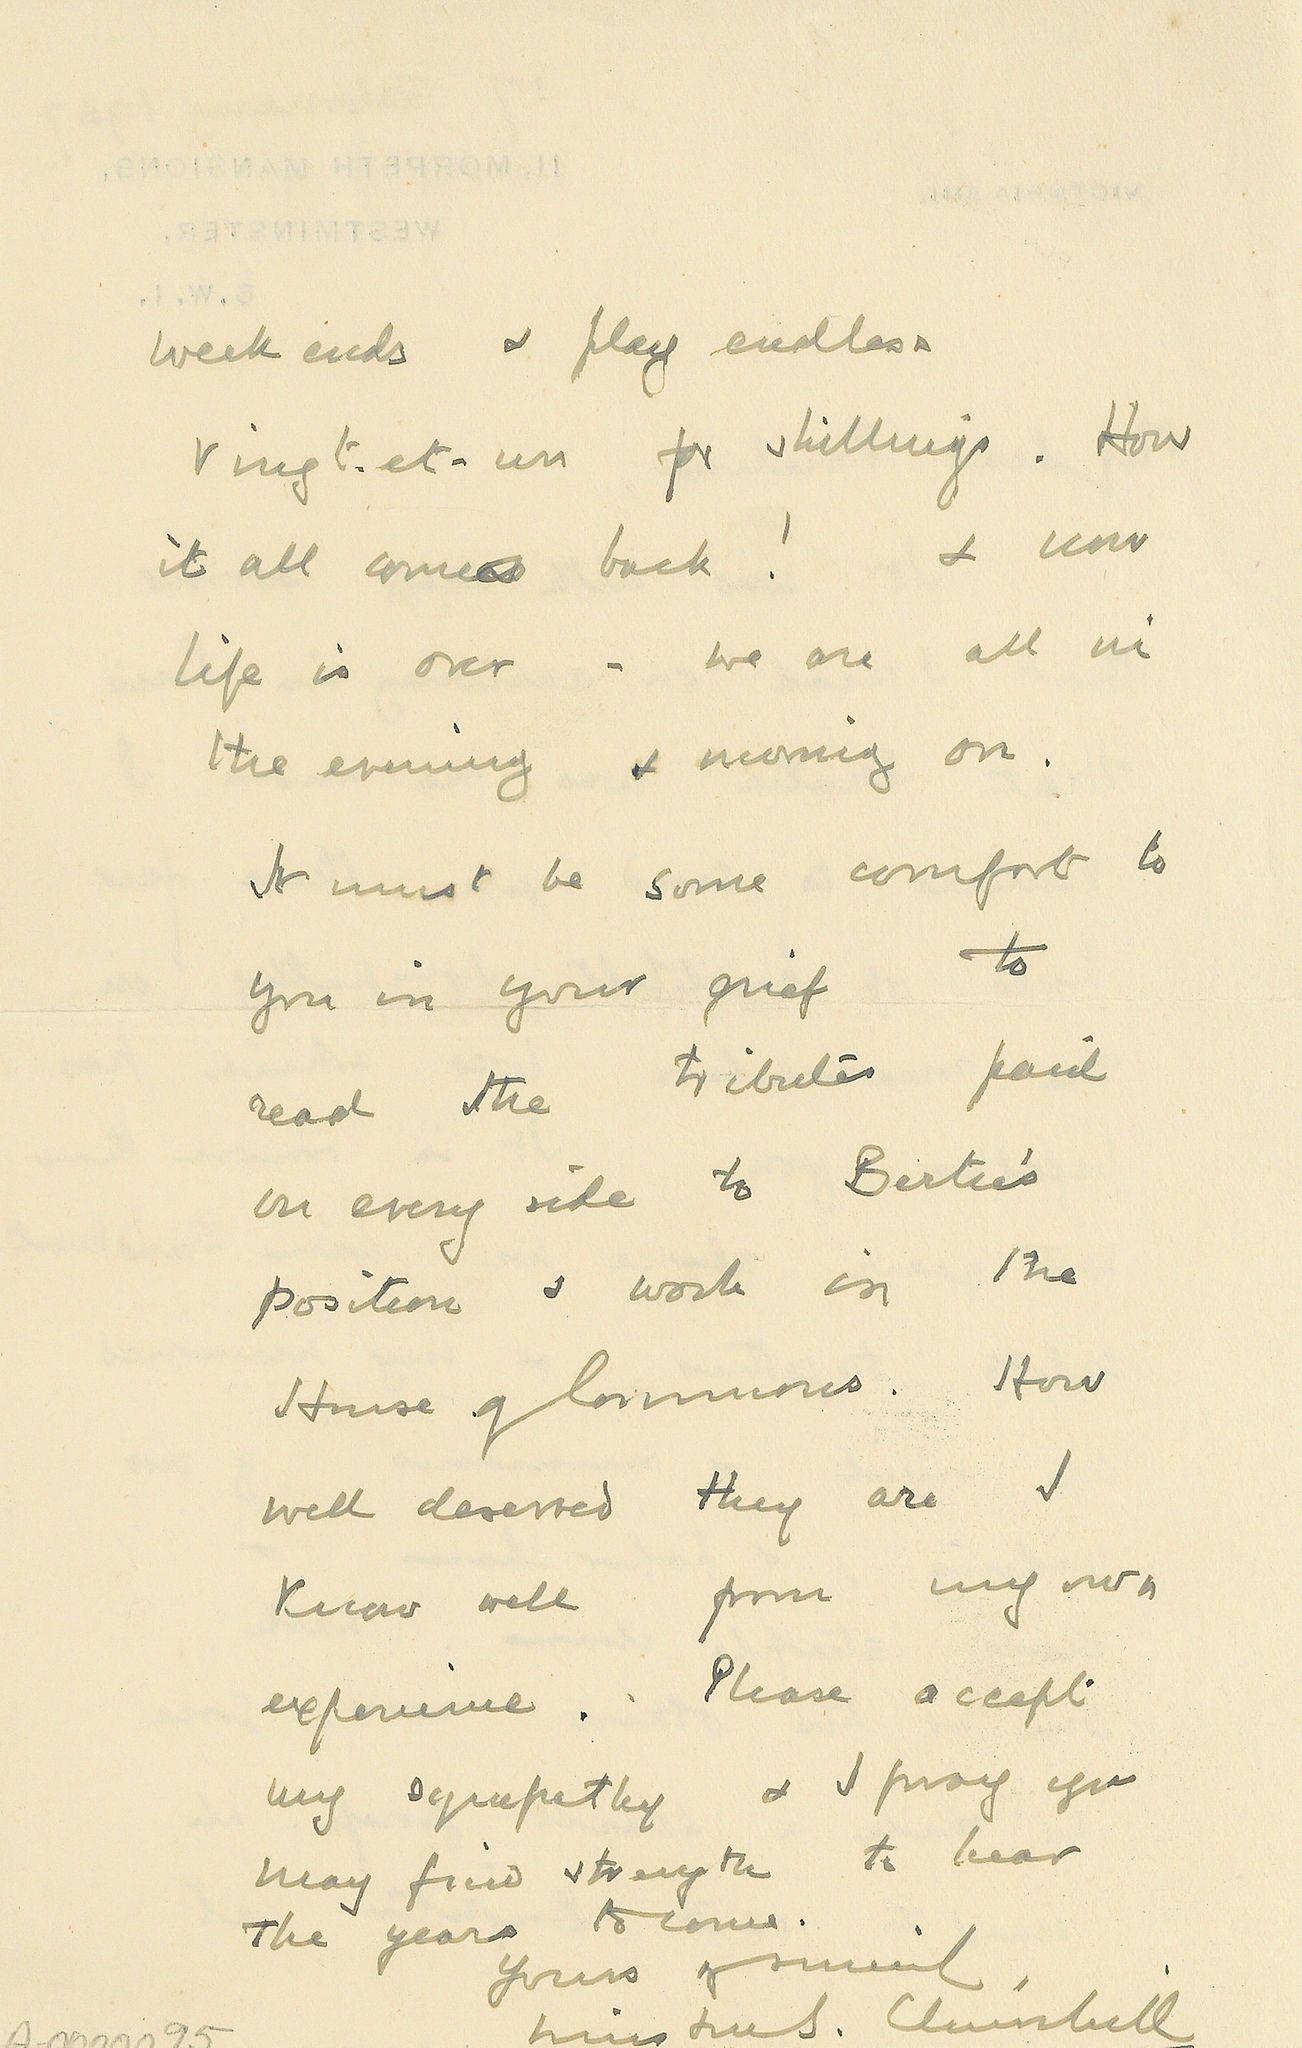 week ends & play endless
vingt-et-un for shillings. How
it all comes back! & now
life is over - we are all in
the evening & moving on.
It must be some comfort to
you in your grief to
read the tributes paid
on every side to Bertie's
position & work in the
House of Commons. How
well deserved they are I
know well from my own
experience. Please accept
my sympathy & I pray you
may find strength to bear
the years to come.
Yours
Winston S. Churchill
11, MORPETH MANSIONS,
WESTMINSTER,
S.W.1.